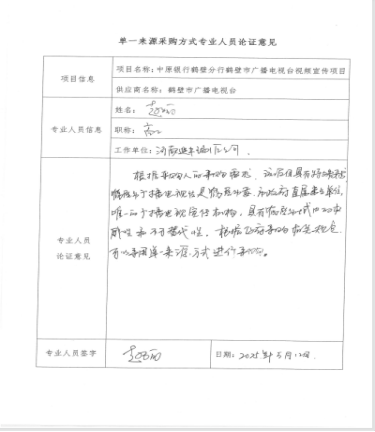 单一来源采购方式专业人员论证意见
项目信息
项目名称：中原银行鹤壁分行鹤壁市广播电视台视频宣传项目
供应商名称：鹤壁市广播电视台
专业人员信息
姓名：
职称：高工
工作单位：河南
专业人员
论证意见
根据采购人的采购需求，该项目具有特殊
鹤壁市广播电视台是鹤壁市委、市政府直属事业单位，
唯一的广播电视宣传机构，具有
和不可替代性。根据政府采购相关规定
可以采用单一来源方式进行采购。
专业人员签字
日期：2025年5月12日